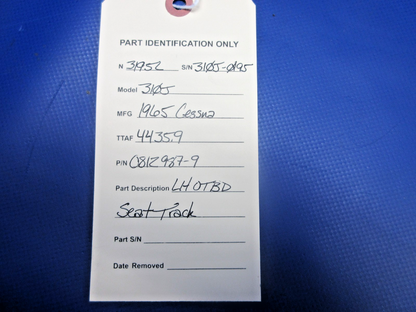 PART IDENTIFICATION ONLY
N 3195L S/N 310J-0195
Model 310J
MFG 1965 Cessna
TTAF 4435.9
P/N 0812987-9
Part Description LH OTBD
Seat Track
Part S/N
Date Removed